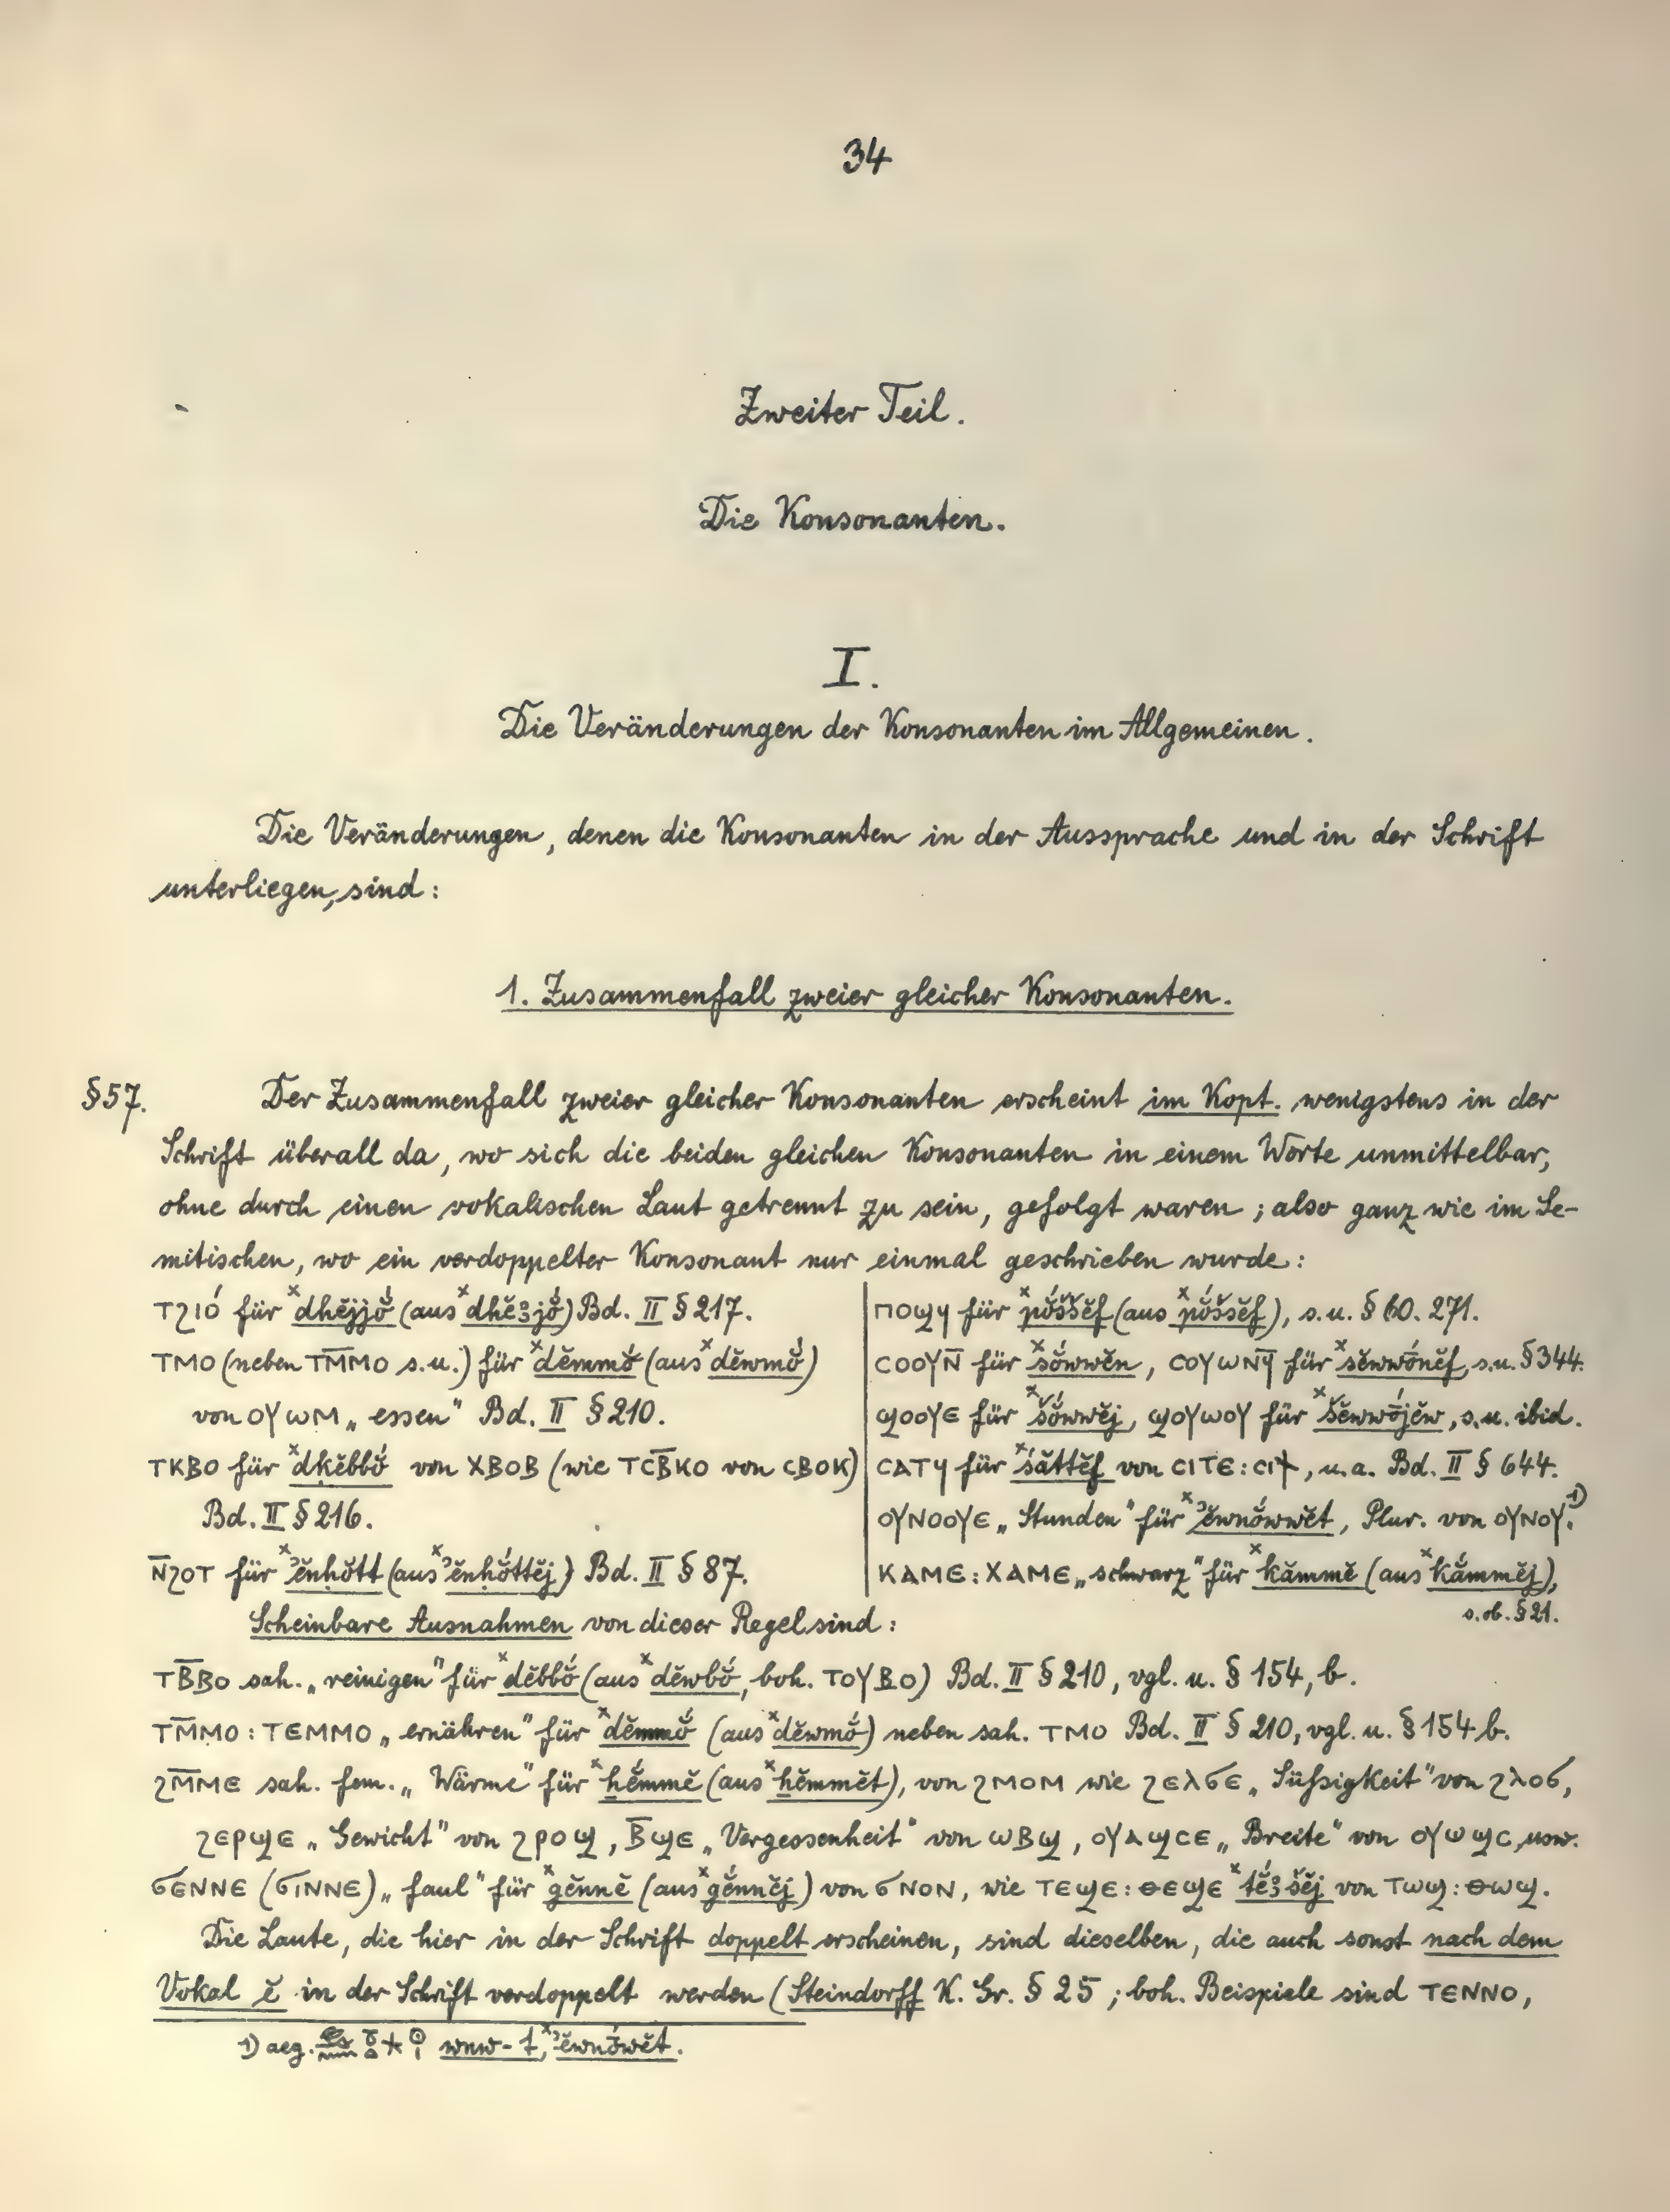 34
Zweiter Teil.
Die Konsonanten.
I.
Die Veränderungen der Konsonanten im Allgemeinen.
Die Veränderungen, denen die Konsonanten in der Aussprache und in der Schrift
unterliegen, sind:
1. Zusammenfall zweier gleicher Konsonanten.
§57. Der Zusammenfall zweier gleicher Konsonanten erscheint im Kopt. wenigstens in der
Schrift überall da, wo sich die beiden gleichen Konsonanten in einem Worte unmittelbar,
ohne durch einen vokalischen Laut getrennt zu sein, gefolgt waren; also ganz wie im Se-
mitischen, wo ein verdoppelter Konsonant nur einmal geschrieben wurde:
ⲧϩⲓⲟ́ für ˣdhĕjjŏ́ (aus ˣdhĕꜣjŏ́) Bd. II § 217.
ⲧⲙⲟ (neben ⲧⲙ̅ⲙⲟ s.u.) für ˣdĕmmŏ́ (aus ˣdĕwmŏ́)
von ⲟⲩⲱⲙ „essen" Bd. II § 210.
ⲧⲕⲃⲟ für ˣdḳĕbbŏ́ von ⲭⲃⲟⲃ (wie ⲧⲥ̅ⲃⲕⲟ von ⲥⲃⲟⲕ)
Bd. II § 216.
ⲛ̅ϩⲟⲧ für ˣʾĕnḥŏ́tt (aus ˣʾĕnḥŏ́ttĕj) Bd. II § 87.
ⲡⲟϣϥ für ˣpŏ́ššĕf (aus ˣpŏ́sšĕf), s.u. § 60. 271.
ⲥⲟⲟⲩⲛ̅ für ˣsŏ́wwĕn, ⲥⲟⲩⲱⲛϥ̅ für ˣsĕwwṓnĕf, s.u. § 344.
ϣⲟⲟⲩⲉ für ˣšŏ́wwĕj, ϣⲟⲩⲱⲟⲩ für ˣšĕwwṓjĕw, s.u. ibid.
ⲥⲁⲧϥ für ˣsắttĕf von ⲥⲓⲧⲉ : ⲥⲓϯ, u.a. Bd. II § 644.
ⲟⲩⲛⲟⲟⲩⲉ „Stunden" für ˣʾĕwnŏ́wwĕt, Plur. von ⲟⲩⲛⲟⲩ.¹⁾
ⲕⲁⲙⲉ : ⲭⲁⲙⲉ „schwarz" für ˣkắmmĕ (aus ˣkắmmĕj),
s. ob. § 21.
Scheinbare Ausnahmen von dieser Regel sind:
ⲧⲃ̅ⲃⲟ sah. „reinigen" für ˣdĕbbŏ́ (aus ˣdĕwbŏ́, boh. ⲧⲟⲩⲃⲟ) Bd. II § 210, vgl. u. § 154, b.
ⲧⲙ̅ⲙⲟ : ⲧⲉⲙⲙⲟ „ernähren" für ˣdĕmmŏ́ (aus ˣdĕwmŏ́) neben sah. ⲧⲙⲟ Bd. II § 210, vgl. u. § 154 b.
ϩⲙ̅ⲙⲉ sah. fem. „Wärme" für ˣḫĕ́mmĕ (aus ˣḫĕ́mmĕt), von ϩⲙⲟⲙ wie ϩⲉⲗϭⲉ „Süßigkeit" von ϩⲗⲟϭ,
ϩⲉⲣϣⲉ „Gewicht" von ϩⲣⲟϣ, ⲃ̅ϣⲉ „Vergessenheit" von ⲱⲃϣ, ⲟⲩⲁϣⲥⲉ „Breite" von ⲟⲩⲱϣⲥ, usw.
ϭⲉⲛⲛⲉ (ϭⲓⲛⲛⲉ) „faul" für ˣgĕ́nnĕ (aus ˣgĕ́nnĕj) von ϭⲛⲟⲛ, wie ⲧⲉϣⲉ : ⲑⲉϣⲉ ˣtĕ́ꜣšĕj von ⲧⲱϣ : ⲑⲱϣ.
Die Laute, die hier in der Schrift doppelt erscheinen, sind dieselben, die auch sonst nach dem
Vokal ĕ in der Schrift verdoppelt werden (Steindorff K. Gr. § 25; boh. Beispiele sind ⲧⲉⲛⲛⲟ,
1) aeg. wnw-t, ˣʾĕwnṓwĕt.